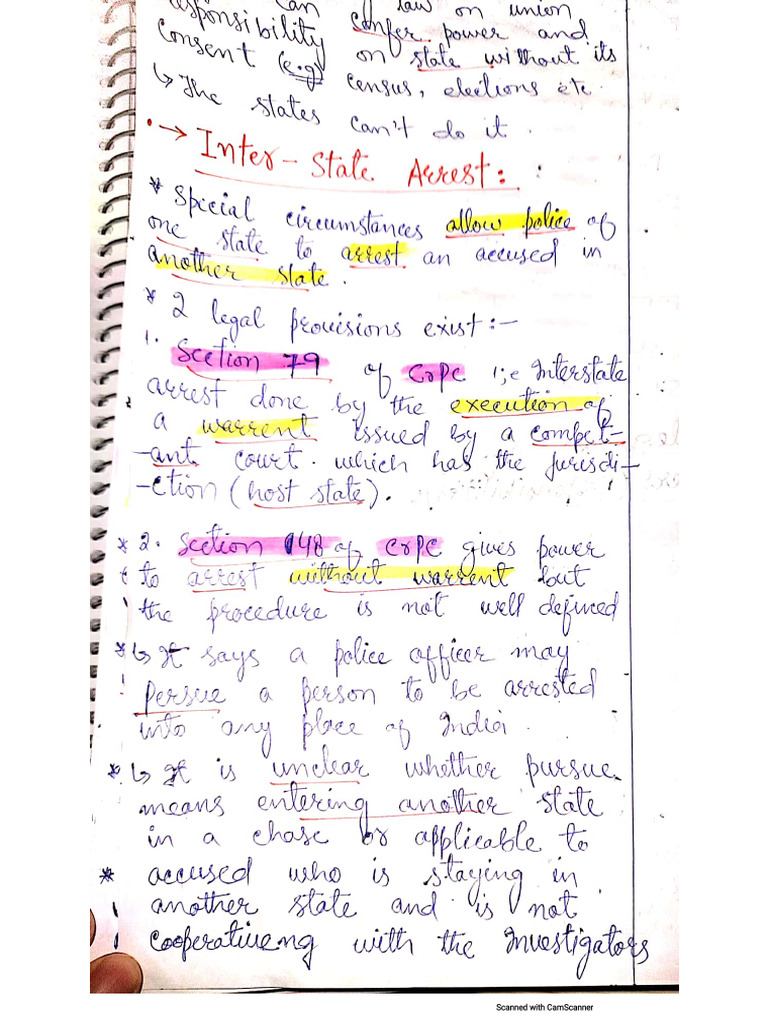 can law on union
responsibility confer power and
consent (e.g) on state without its
↳ The census, elections etc.
states can't do it.
•→ Inter-State Arrest: :
* Special circumstances allow police of
one state to arrest an accused in
another state.
* 2 legal provisions exist:-
1. Section 79 of CrPC i;e Interstate
arrest done by the execution of
a warrent issued by a compet-
-ant court. which has the jurisdi-
-ction (host state).
* 2. Section 48 of CrPC gives power
to arrest without warrent but
the procedure is not well defined
* ↳ It says a police officer may
persue a person to be arrested
into any place of India.
* ↳ It is unclear whether pursue
means entering another state
in a chase or applicable to
* accused who is staying in
another state and is not
cooperativeng with the Investigators
Scanned with CamScanner